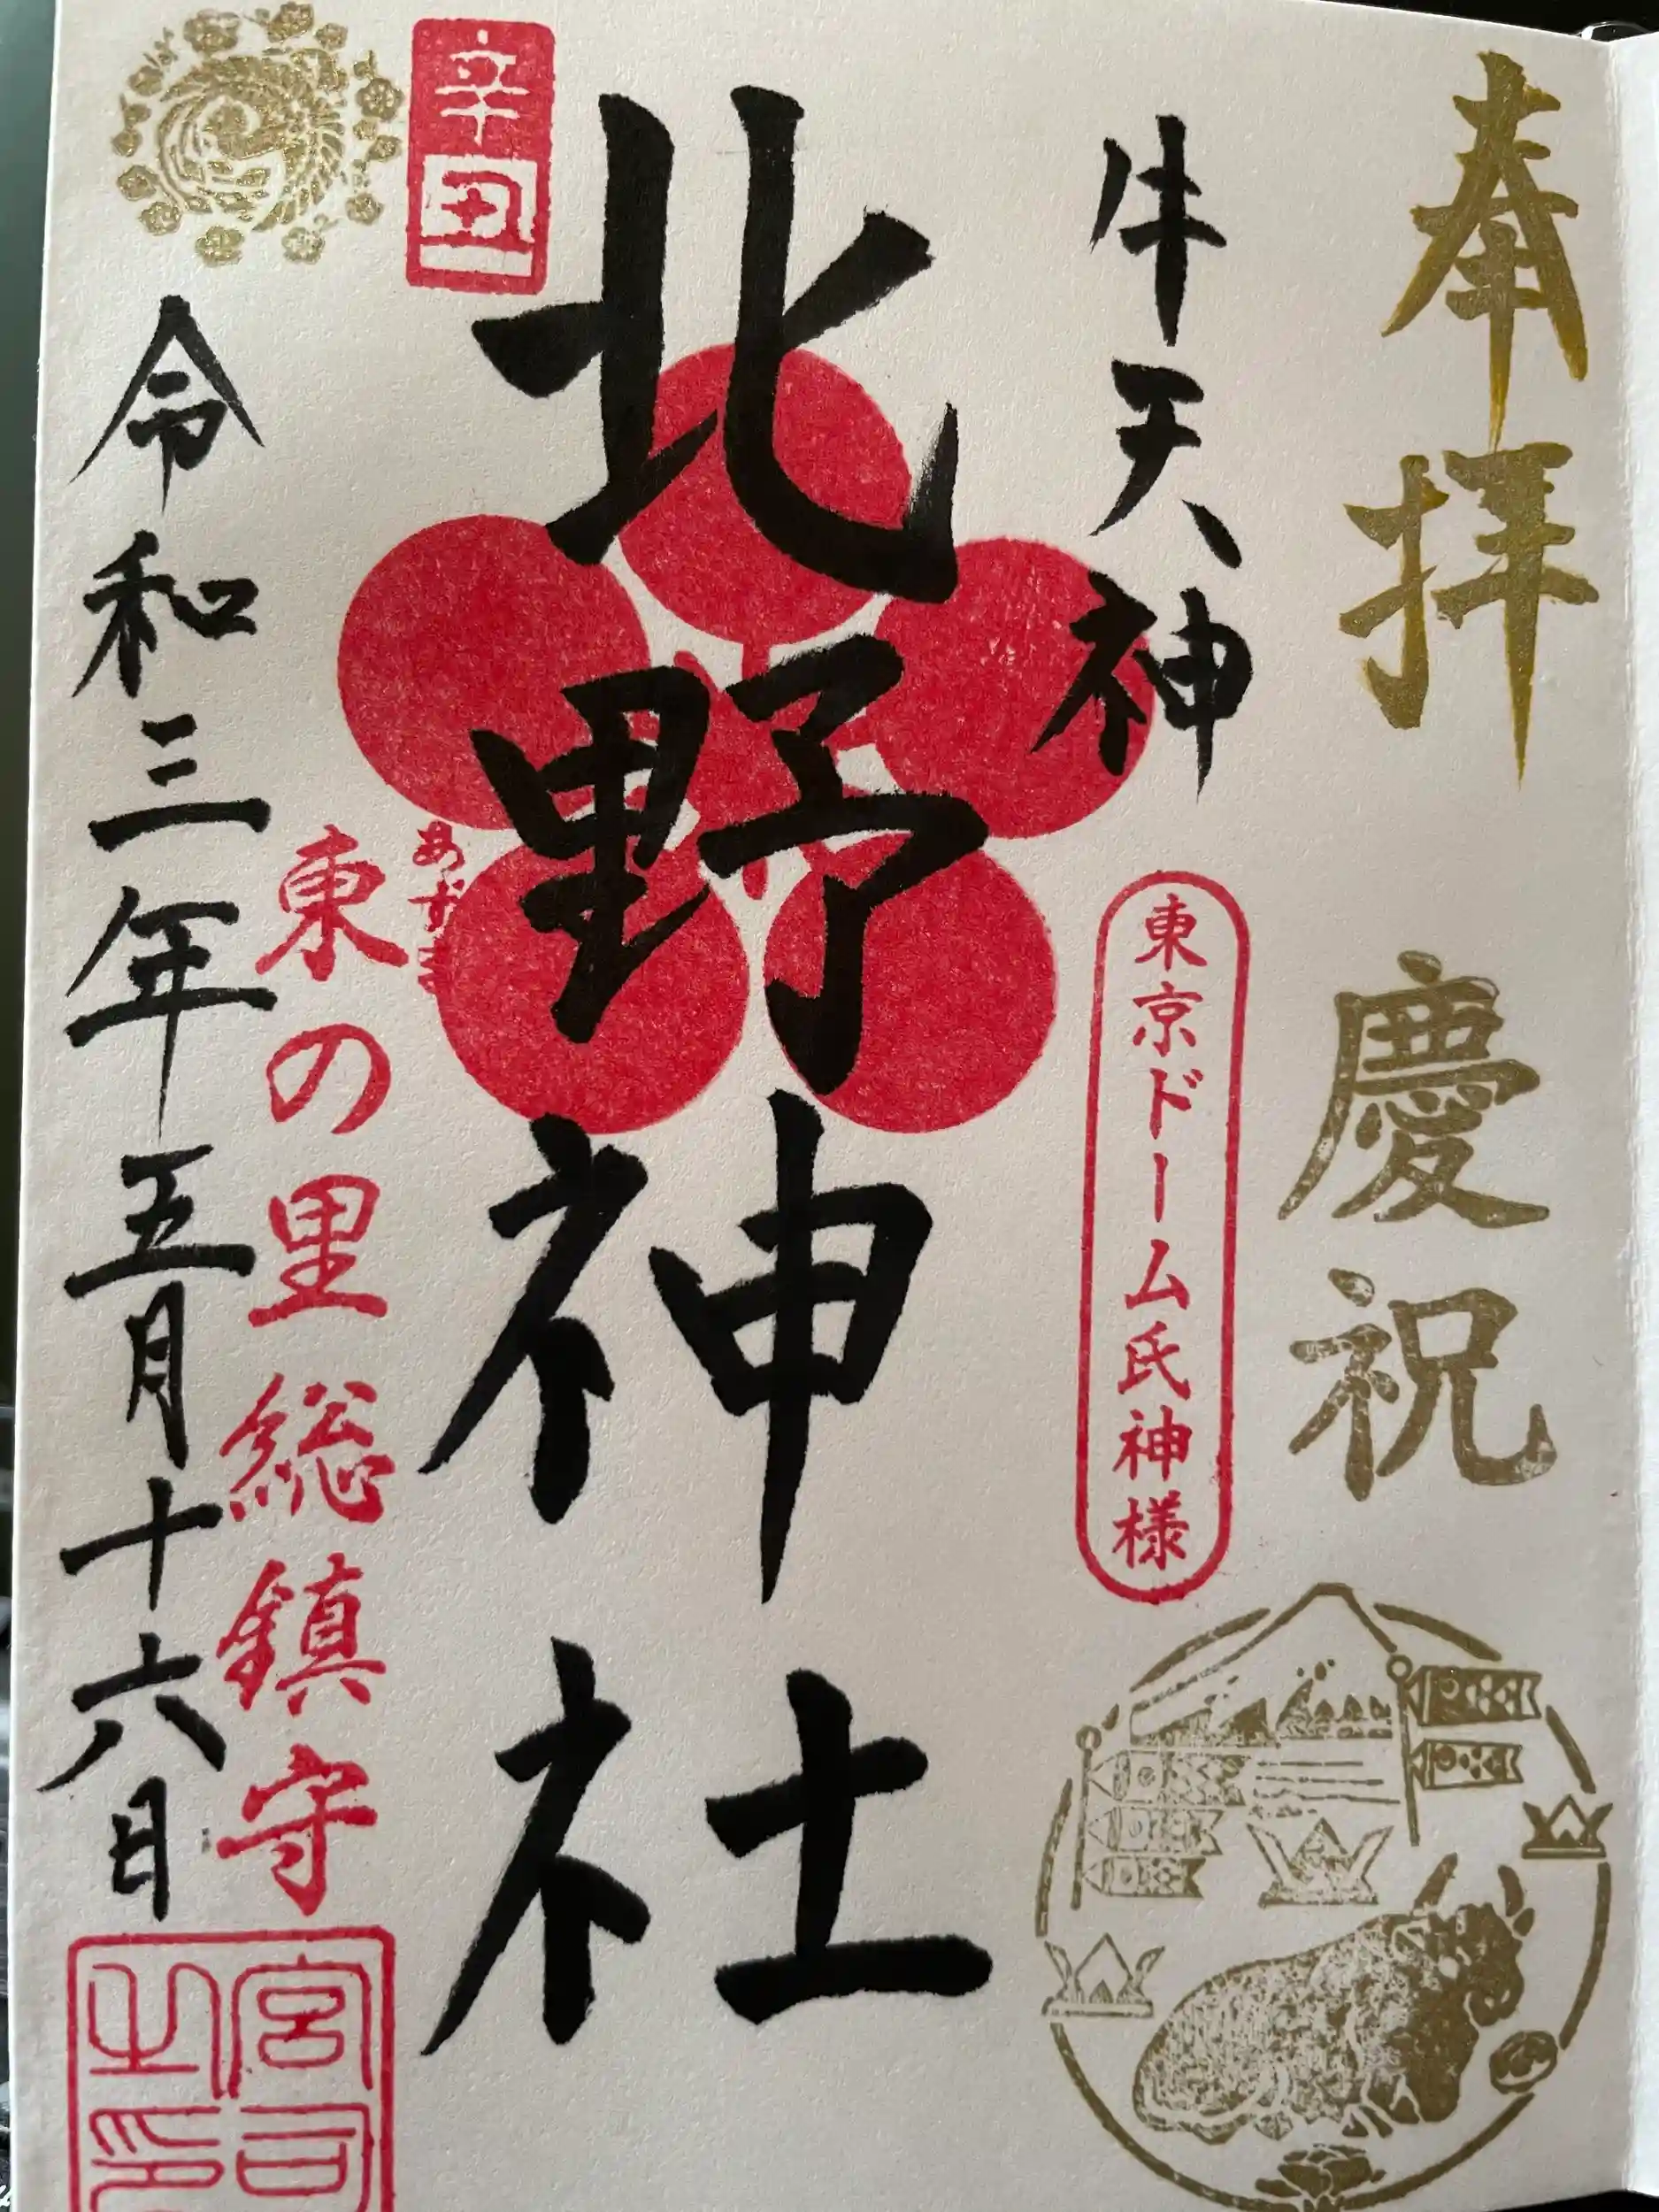 奉拝
慶祝
牛天神
東京ドーム氏神様
北野神社
辛丑
あずま
東の里総鎮守
令和三年五月十六日
宮司之印